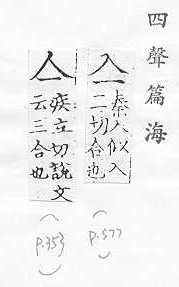 四聲篇海
亼
秦入似入
二切合也
(p.577)
亼
疾立切說文
云三合也
(p.353)